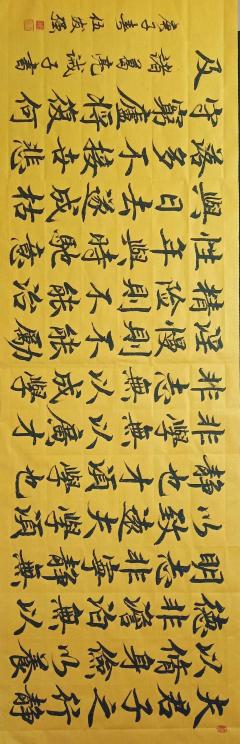 夫君子之行靜
以脩身儉以養
德非澹泊無以
明志非寧靜無
以致遠夫學須
靜也才須學也
非學無以廣才
非志無以成學
淫慢則不能勵
精险則不能治
性年與時馳意
與日去遂成枯
落多不接世悲
守窮廬將復何
及
諸葛亮誡子書
庚子春